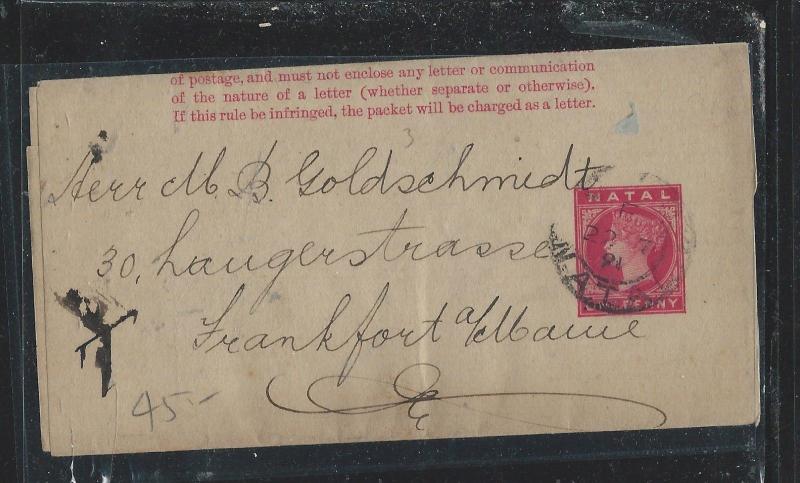 of postage, and must not enclose any letter or communication
of the nature of a letter (whether separate or otherwise).
If this rule be infringed, the packet will be charged as a letter.
3
Herr M. B. Goldschmidt
30, Laugerstrasse
Frankfort a/Maine
NATAL
22
91
NAT
PENNY
45-